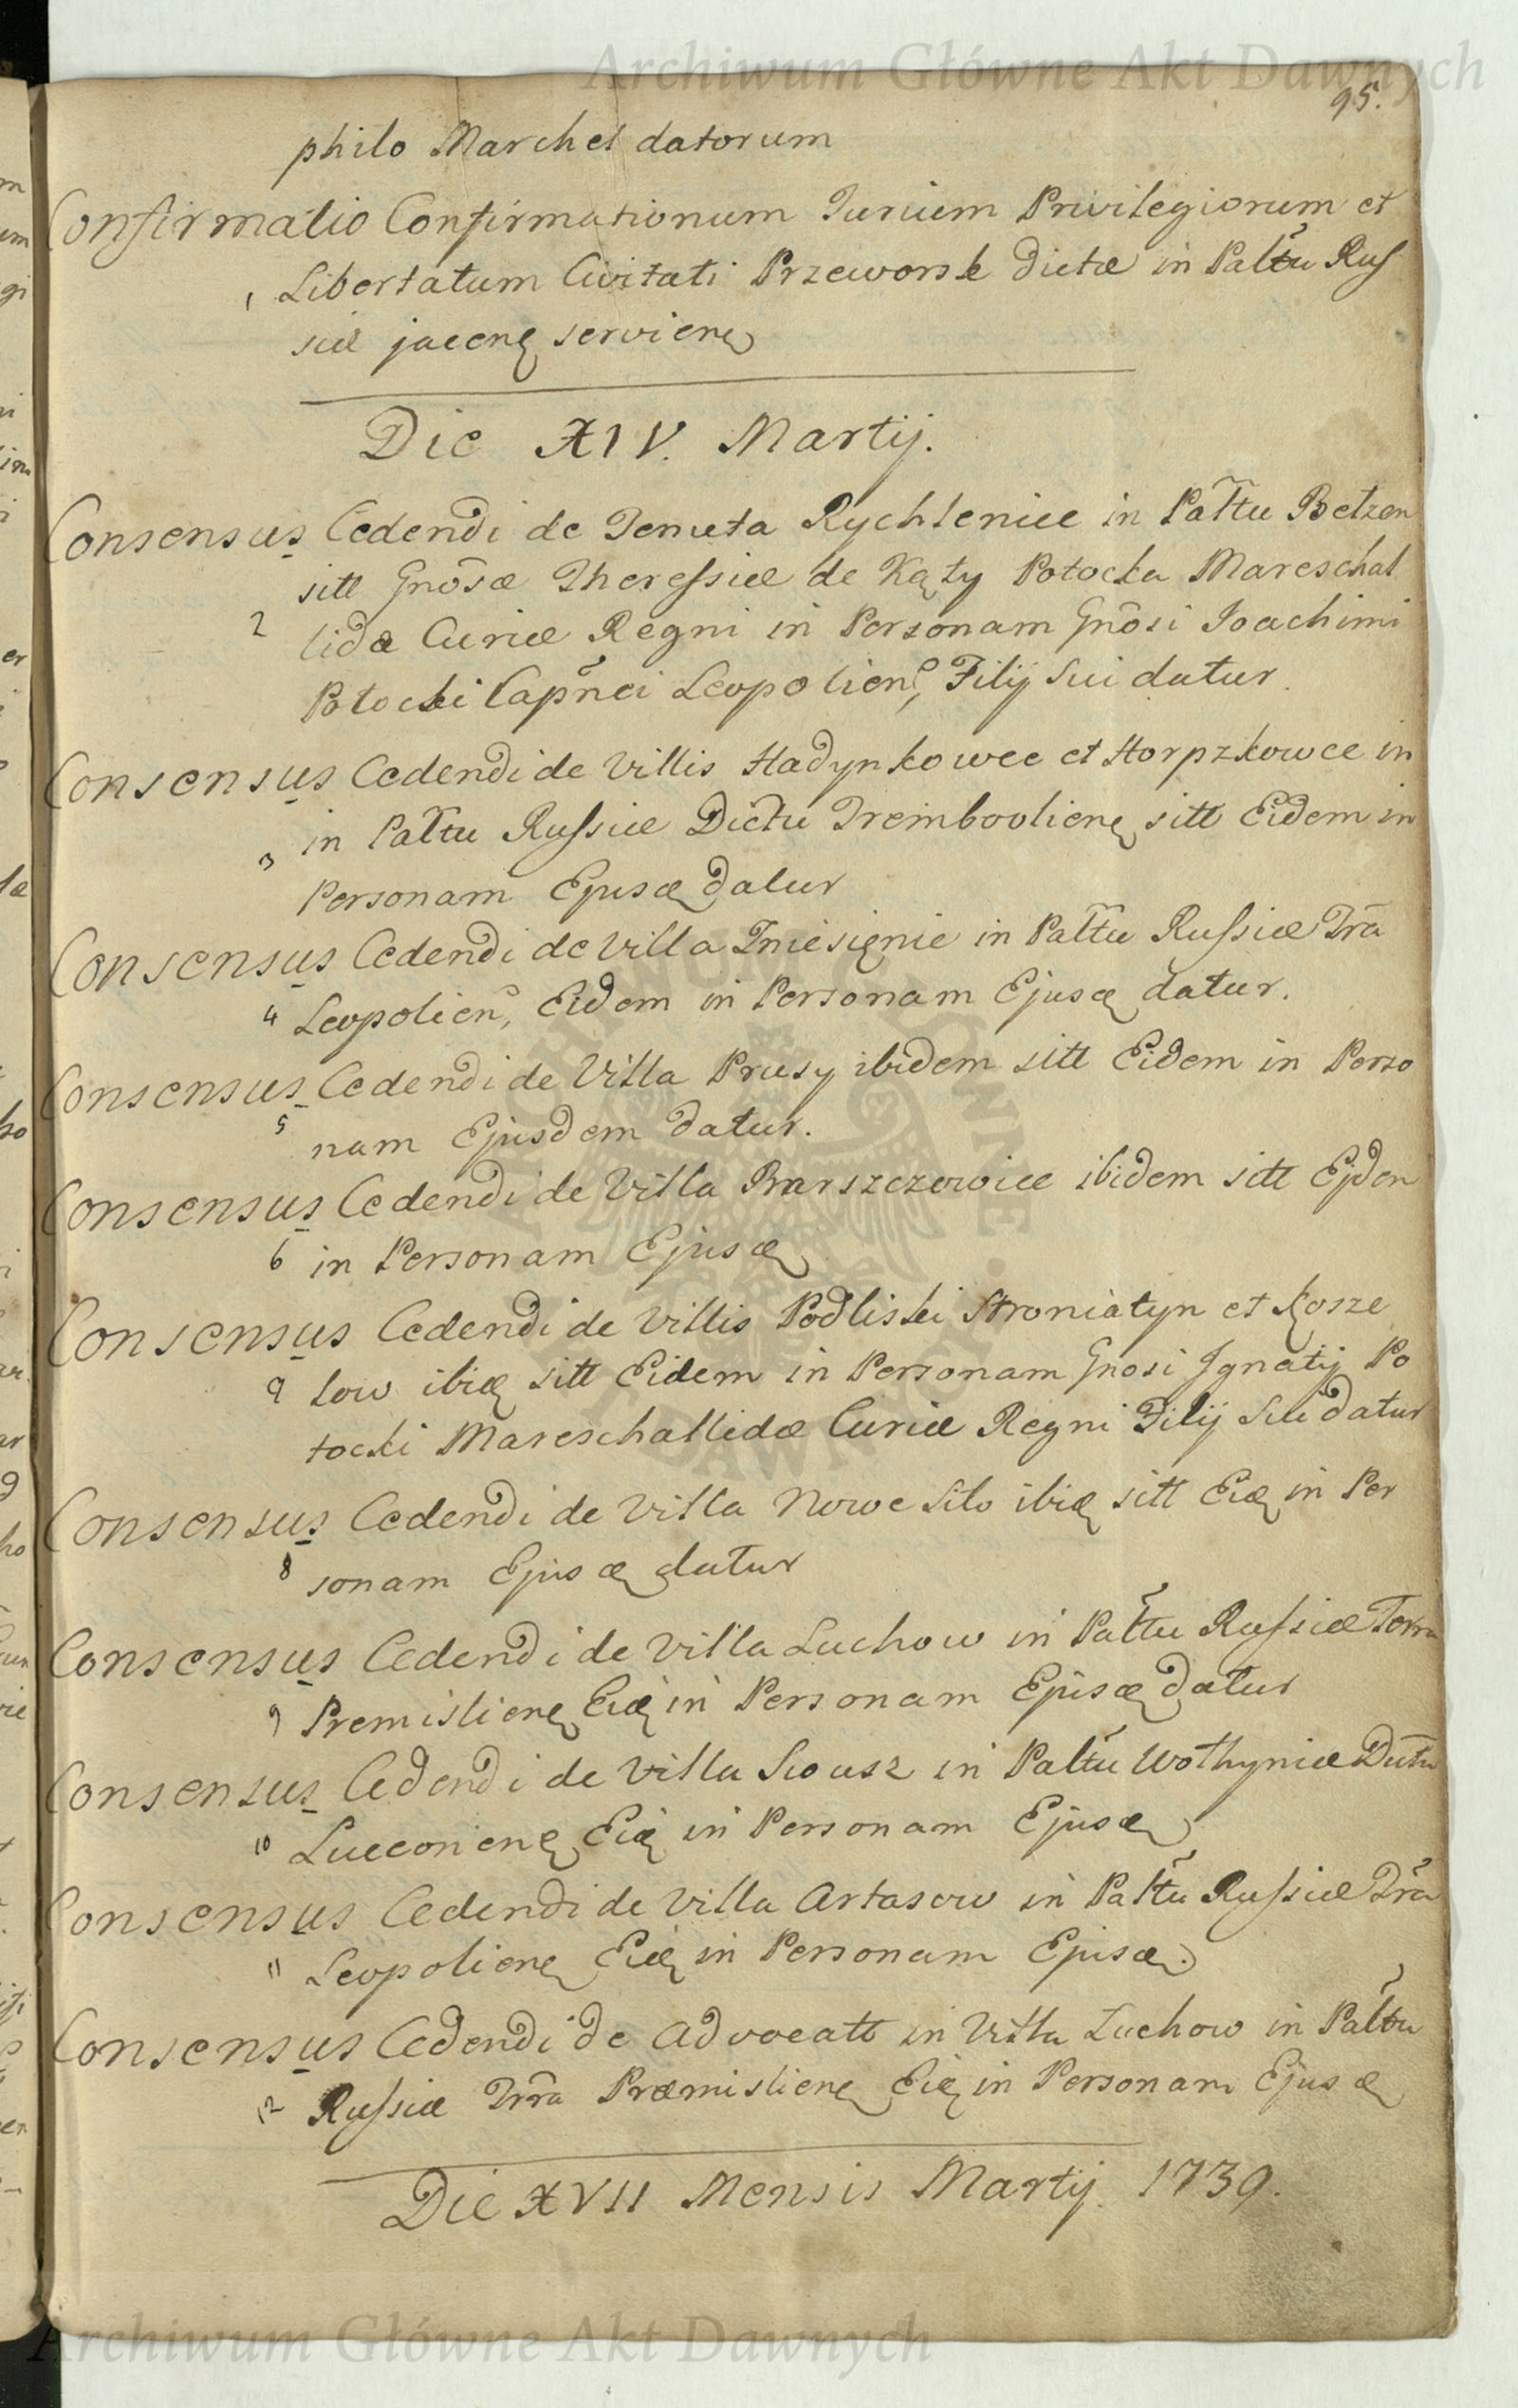 Archiwum Główne Akt Dawnych
95.
philo Marchel datorum
Confirmatio Confirmationum Jurium Privilegiorum et
1 Libertatum Civitati Przeworsk dictæ in Palt̃u Rus
siæ jacenę servienę
Die XIV. Martij.
Consensus Cedendi de Tenuta Rychlenice in Palt̃u Belzen
sitt Gnõsæ Theressiæ de Kąty Potocka Mareschal
2 lidæ Curiæ Regni in Personam Gnõsi Joachimi
Potocki Capñei Leopolien, Filij sui datur.
Consensus Cedendi de Villis Hadynkowce et Horpzkowce in
3 in Palt̃u Russiæ Dictu Trembovlienę sitt Eidem in
Personam Ejusdę datur
Consensus Cedendi de Villa Zniesięnie in Palt̃u Russiæ Tr̃a
4 Leopolien, Eidem in Personam Ejusdę datur.
Consensus Cedendi de Villa Prusy ibidem sitt Eidem in Perso
5 nam Ejusdem datur.
Consensus Cedendi de Villa Barszczowice ibidem sitt Ejdem
6 in Personam Ejusdę
Consensus Cedendi de Villis Podliski Stroniatyn et Kosze
7 low ibidę sitt Eidem in Personam Gnosi Ignatij Po
tocki Mareschallidæ Curiæ Regni Filij Sui datur
Consensus Cedendi de Villa Nowe Silo ibidę sitt Eidę in Per
8 sonam Ejusdę datur
Consensus Cedendi de Villa Luchow in Palt̃u Russiæ Terra
9 Premislienę Eidę in Personam Ejusdę datur
Consensus Cedendi de Villa in Palt̃u Wolhyniæ Dictu
10 Lucconienę Eidę in Personam Ejusdę
Consensus Cedendi de Villa Artasow in Palt̃u Russiæ Tr̃a
11 Leopolienę Eidę in Personam Ejusdę.
Consensus Cedendi de Advocatt in Villa Luchow in Palt̃u
12 Russiæ Tr̃ra Præmislienę Eidę in Personam Ejusdę
Die XVII Mensis Martij. 1739.
Archiwum Główne Akt Dawnych